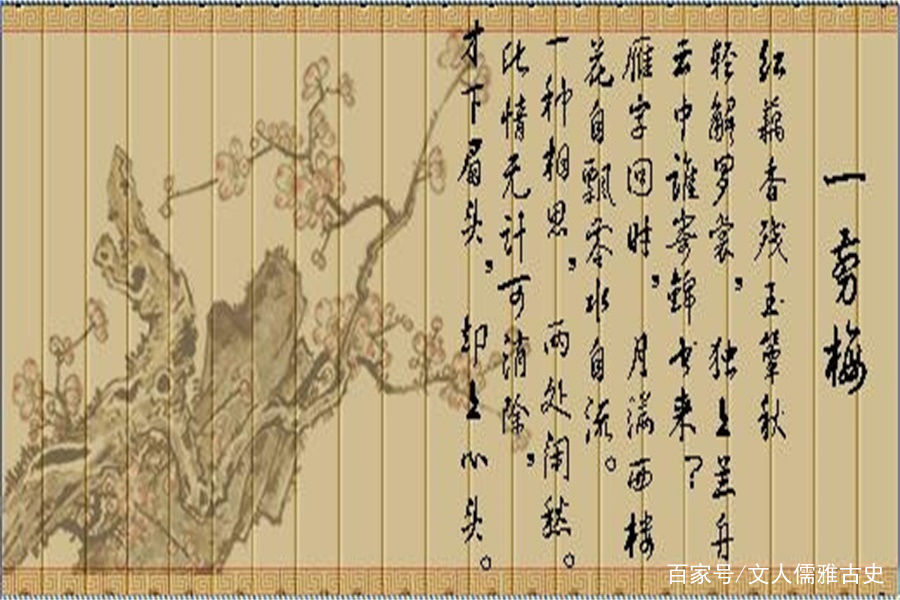 一剪梅
红藕香残玉簟秋
轻解罗裳，独上兰舟
云中谁寄锦书来？
雁字回时，月满西楼
花自飘零水自流。
一种相思，两处闲愁。
此情无计可消除，
才下眉头，却上心头。
百家号/文人儒雅古史